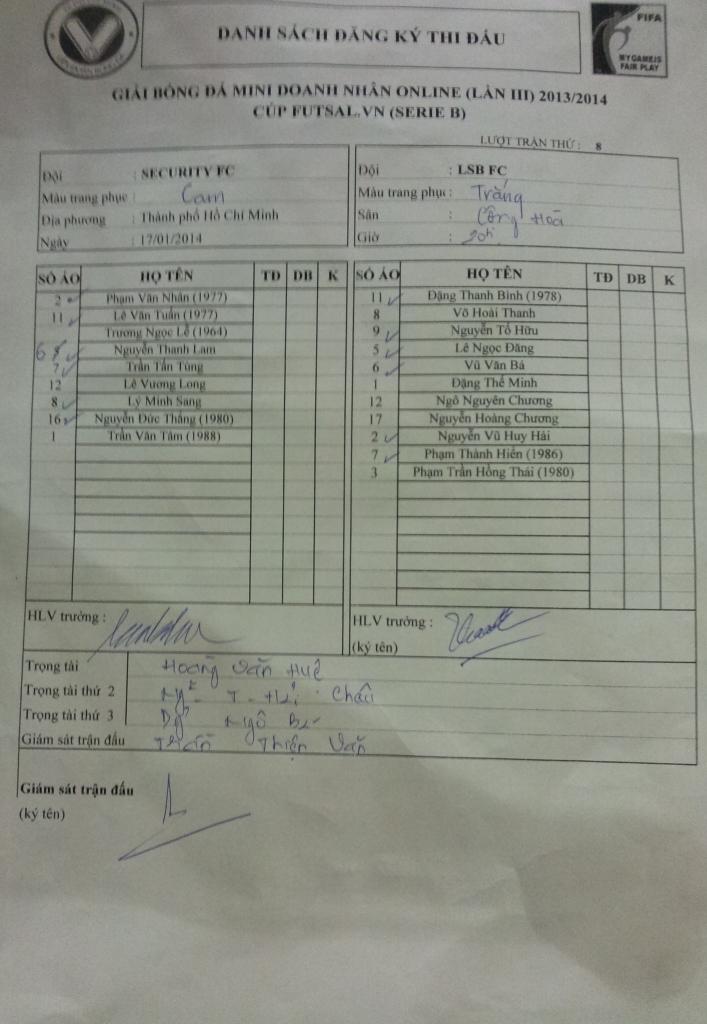 DANH SÁCH ĐĂNG KÝ THI ĐẤU
FIFA
MY GAME IS
FAIR PLAY
GIẢI BÓNG ĐÁ MINI DOANH NHÂN ONLINE (LẦN III) 2013/2014
CÚP FUTSAL.VN (SERIE B)
LƯỢT TRẬN THỨ : 8
Đội : SECURITY FC
Màu trang phục : Cam
Địa phương : Thành phố Hồ Chí Minh
Ngày : 17/01/2014
Đội : LSB FC
Màu trang phục : Trắng
Sân : Cộng Hoà
Giờ : 20h
SỐ ÁO HỌ TÊN TĐ DB K
2 Phạm Văn Nhân (1977)
11 Lê Văn Tuấn (1977)
Trương Ngọc Lễ (1964)
6 Nguyễn Thanh Lam
7 Trần Tấn Tùng
12 Lê Vương Long
8 Lý Minh Sang
16 Nguyễn Đức Thắng (1980)
1 Trần Văn Tâm (1988)
SỐ ÁO HỌ TÊN TĐ DB K
11 Đặng Thanh Bình (1978)
8 Võ Hoài Thanh
9 Nguyễn Tố Hữu
5 Lê Ngọc Đăng
6 Vũ Văn Bá
1 Đặng Thế Minh
12 Ngô Nguyên Chương
17 Nguyễn Hoàng Chương
2 Nguyễn Vũ Huy Hải
7 Phạm Thành Hiển (1986)
3 Phạm Trần Hồng Thái (1980)
HLV trưởng :
HLV trưởng :
(ký tên)
Trọng tài Hoàng Văn Huệ
Trọng tài thứ 2 Châu
Trọng tài thứ 3 Ngô
Giám sát trận đấu Thiện Văn
Giám sát trận đấu
(ký tên)